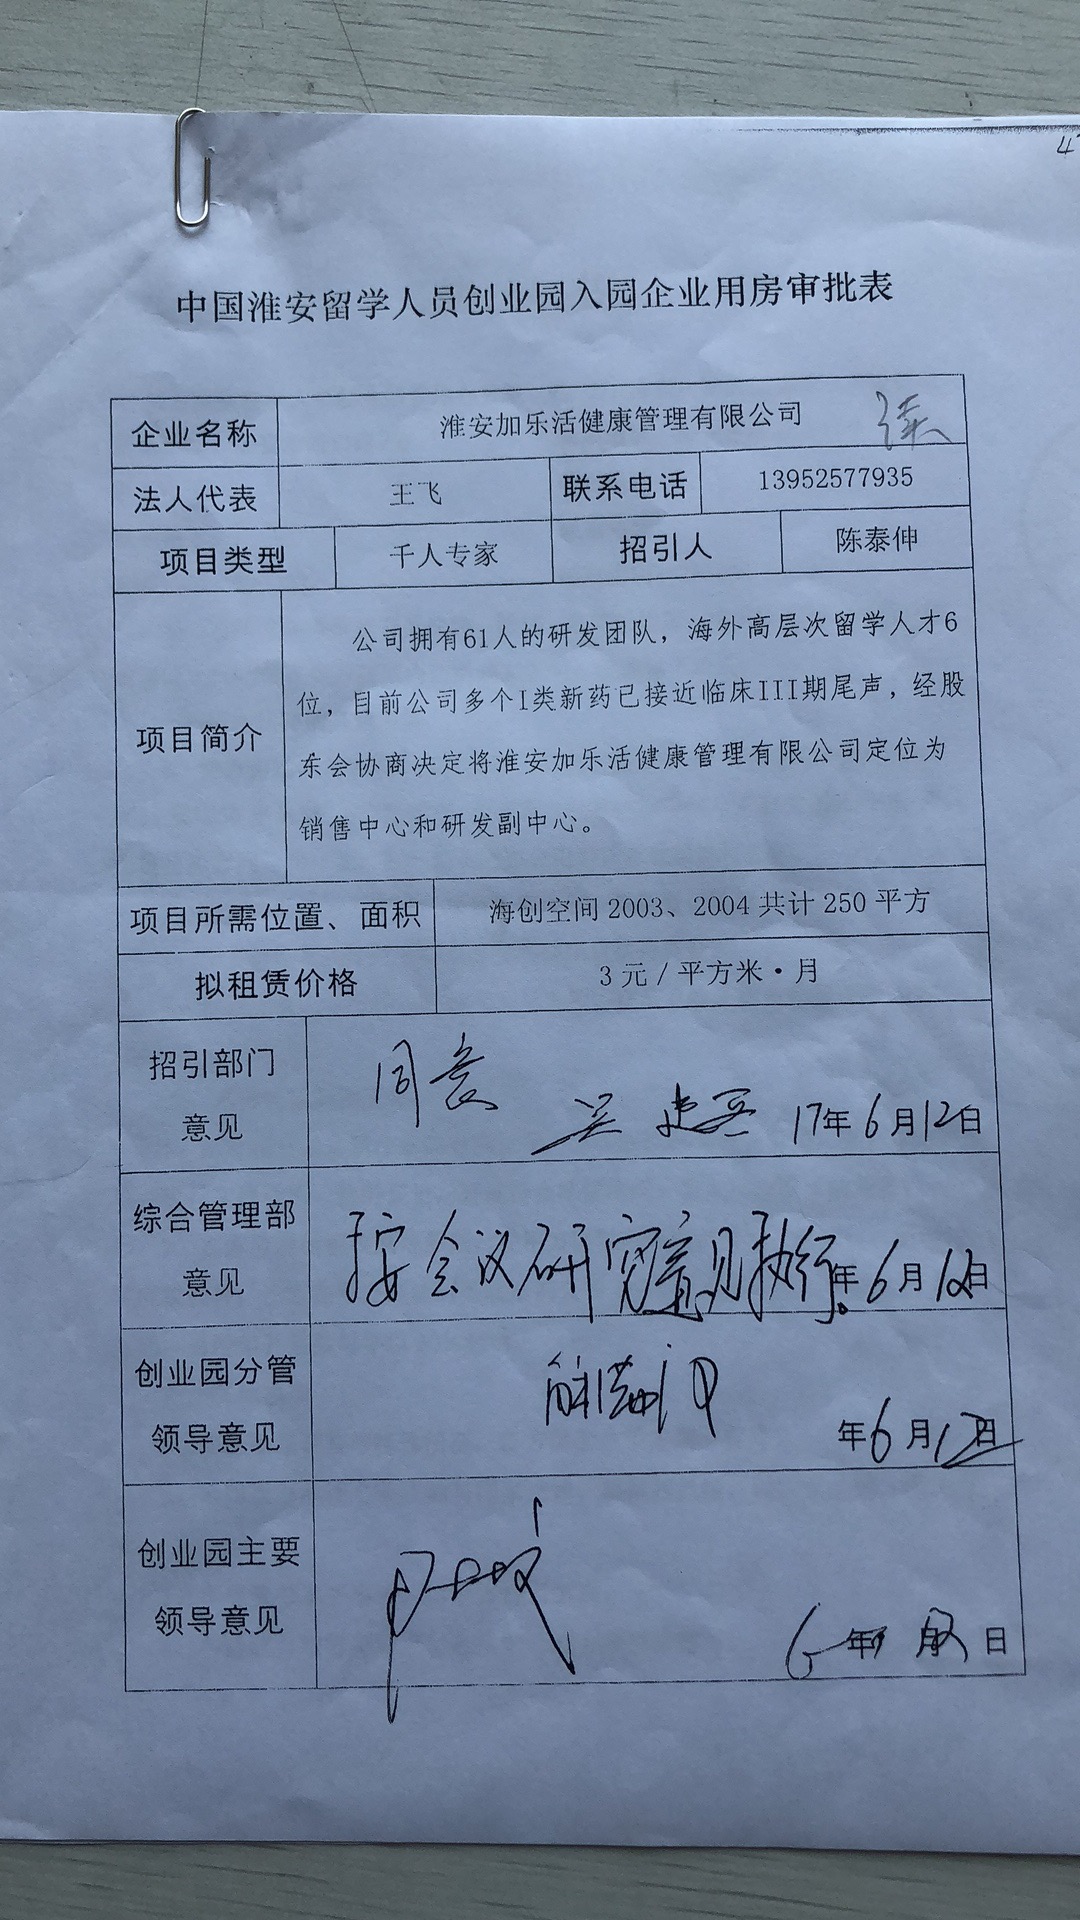 中国淮安留学人员创业园入园企业用房审批表
企业名称 淮安加乐活健康管理有限公司
法人代表 王飞 联系电话 13952577935
项目类型 千人专家 招引人 陈泰伸
项目简介
公司拥有61人的研发团队，海外高层次留学人才6
位，目前公司多个I类新药已接近临床III期尾声，经股
东会协商决定将淮安加乐活健康管理有限公司定位为
销售中心和研发副中心。
项目所需位置、面积 海创空间 2003、2004 共计 250 平方
拟租赁价格 3 元 / 平方米·月
招引部门
意见
同意
17年 6月12日
综合管理部
意见
按会议研究意见执行。
年 6月12日
创业园分管
领导意见
年 6月12日
创业园主要
领导意见
年 月 日